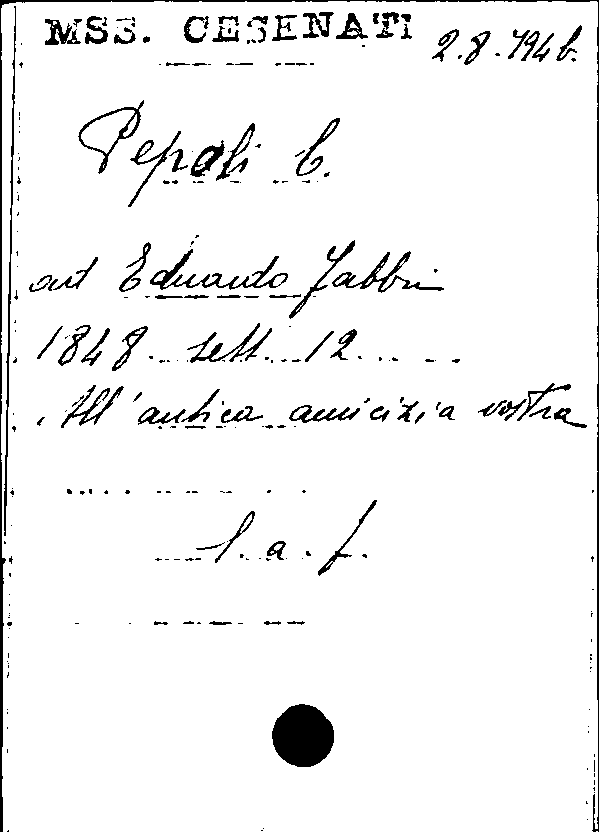 MSS. CESENATI
2.8.1946.
Pepoli C.
ad Eduardo Fabbri
1848 sett. 12
All'antica amicizia vostra
l. a. f.